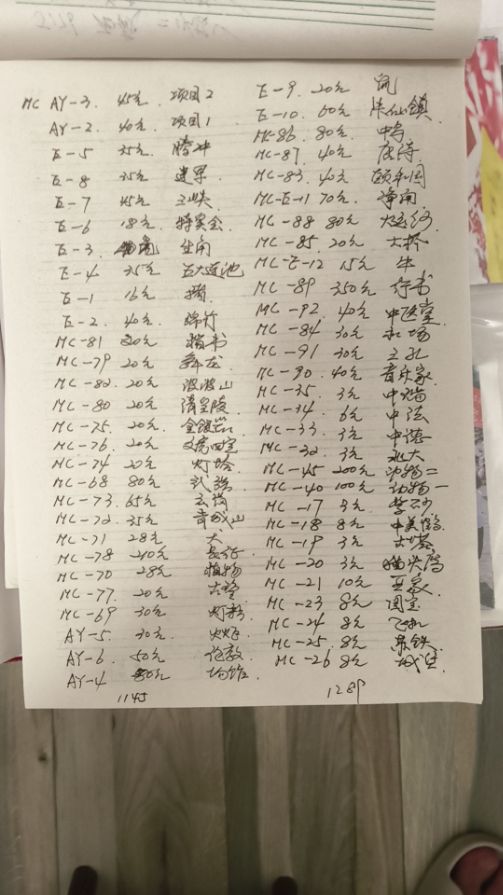 MC AY-3. 45元 项目2
AY-2. 40元 项目1
E-5 35元 腾冲
E-8 35元 建军
E-7 45元 三峡
E-6 18元 特奥会
E-3 生肖
E-4 35元 五大连池
E-1 16元 猪
E-2. 40元 绵竹
MC-81 20元 楷书
MC-79 20元 舞龙
MC-82. 20元
MC-80 20元 清皇陵
MC-75. 20元 金银器
MC-76. 20元 文房四宝
MC-74 20元 灯塔
MC-68 80元 武强
MC-73. 65元 云岗
MC-72. 35元 青城山
MC-71 28元 犬
MC-78 240元 长征
MC-70 28元 植物
MC-77 20元 大学
MC-69 30元 灯彩
AY-5. 30元 火炬
AY-6 50元 伦敦
AY-4 80元 场馆
1145
E-9. 20元 鼠
E-10. 60元 朱仙镇
MC-86. 80元 中鸟
MC-87. 40元 唐诗
MC-83. 40元 颐和园
MC-E-11 70元 漳州
MC-88 80元 大运河
MC-85. 20元 大桥
MC-E-12 15元 牛
MC-89 350元 行书
MC-92. 40元 中医堂
MC-84 30元 机场
MC-91 30元 三孔
MC-90. 40元 音乐家
MC-35 3元 中瑞
MC-34 6元 中法
MC-33. 3元 中港
MC-32. 3元 北大
MC-45 200元 动物二
MC-40 100元 动物一
MC-17 3元
MC-18 8元 中美鹤
MC-19 3元 古塔
MC-20 3元 猫头鹰
MC-21 10元
MC-23 8元 国宝
MC-24 8元 飞机
MC-25. 8元 苏铁
MC-26 8元
1289